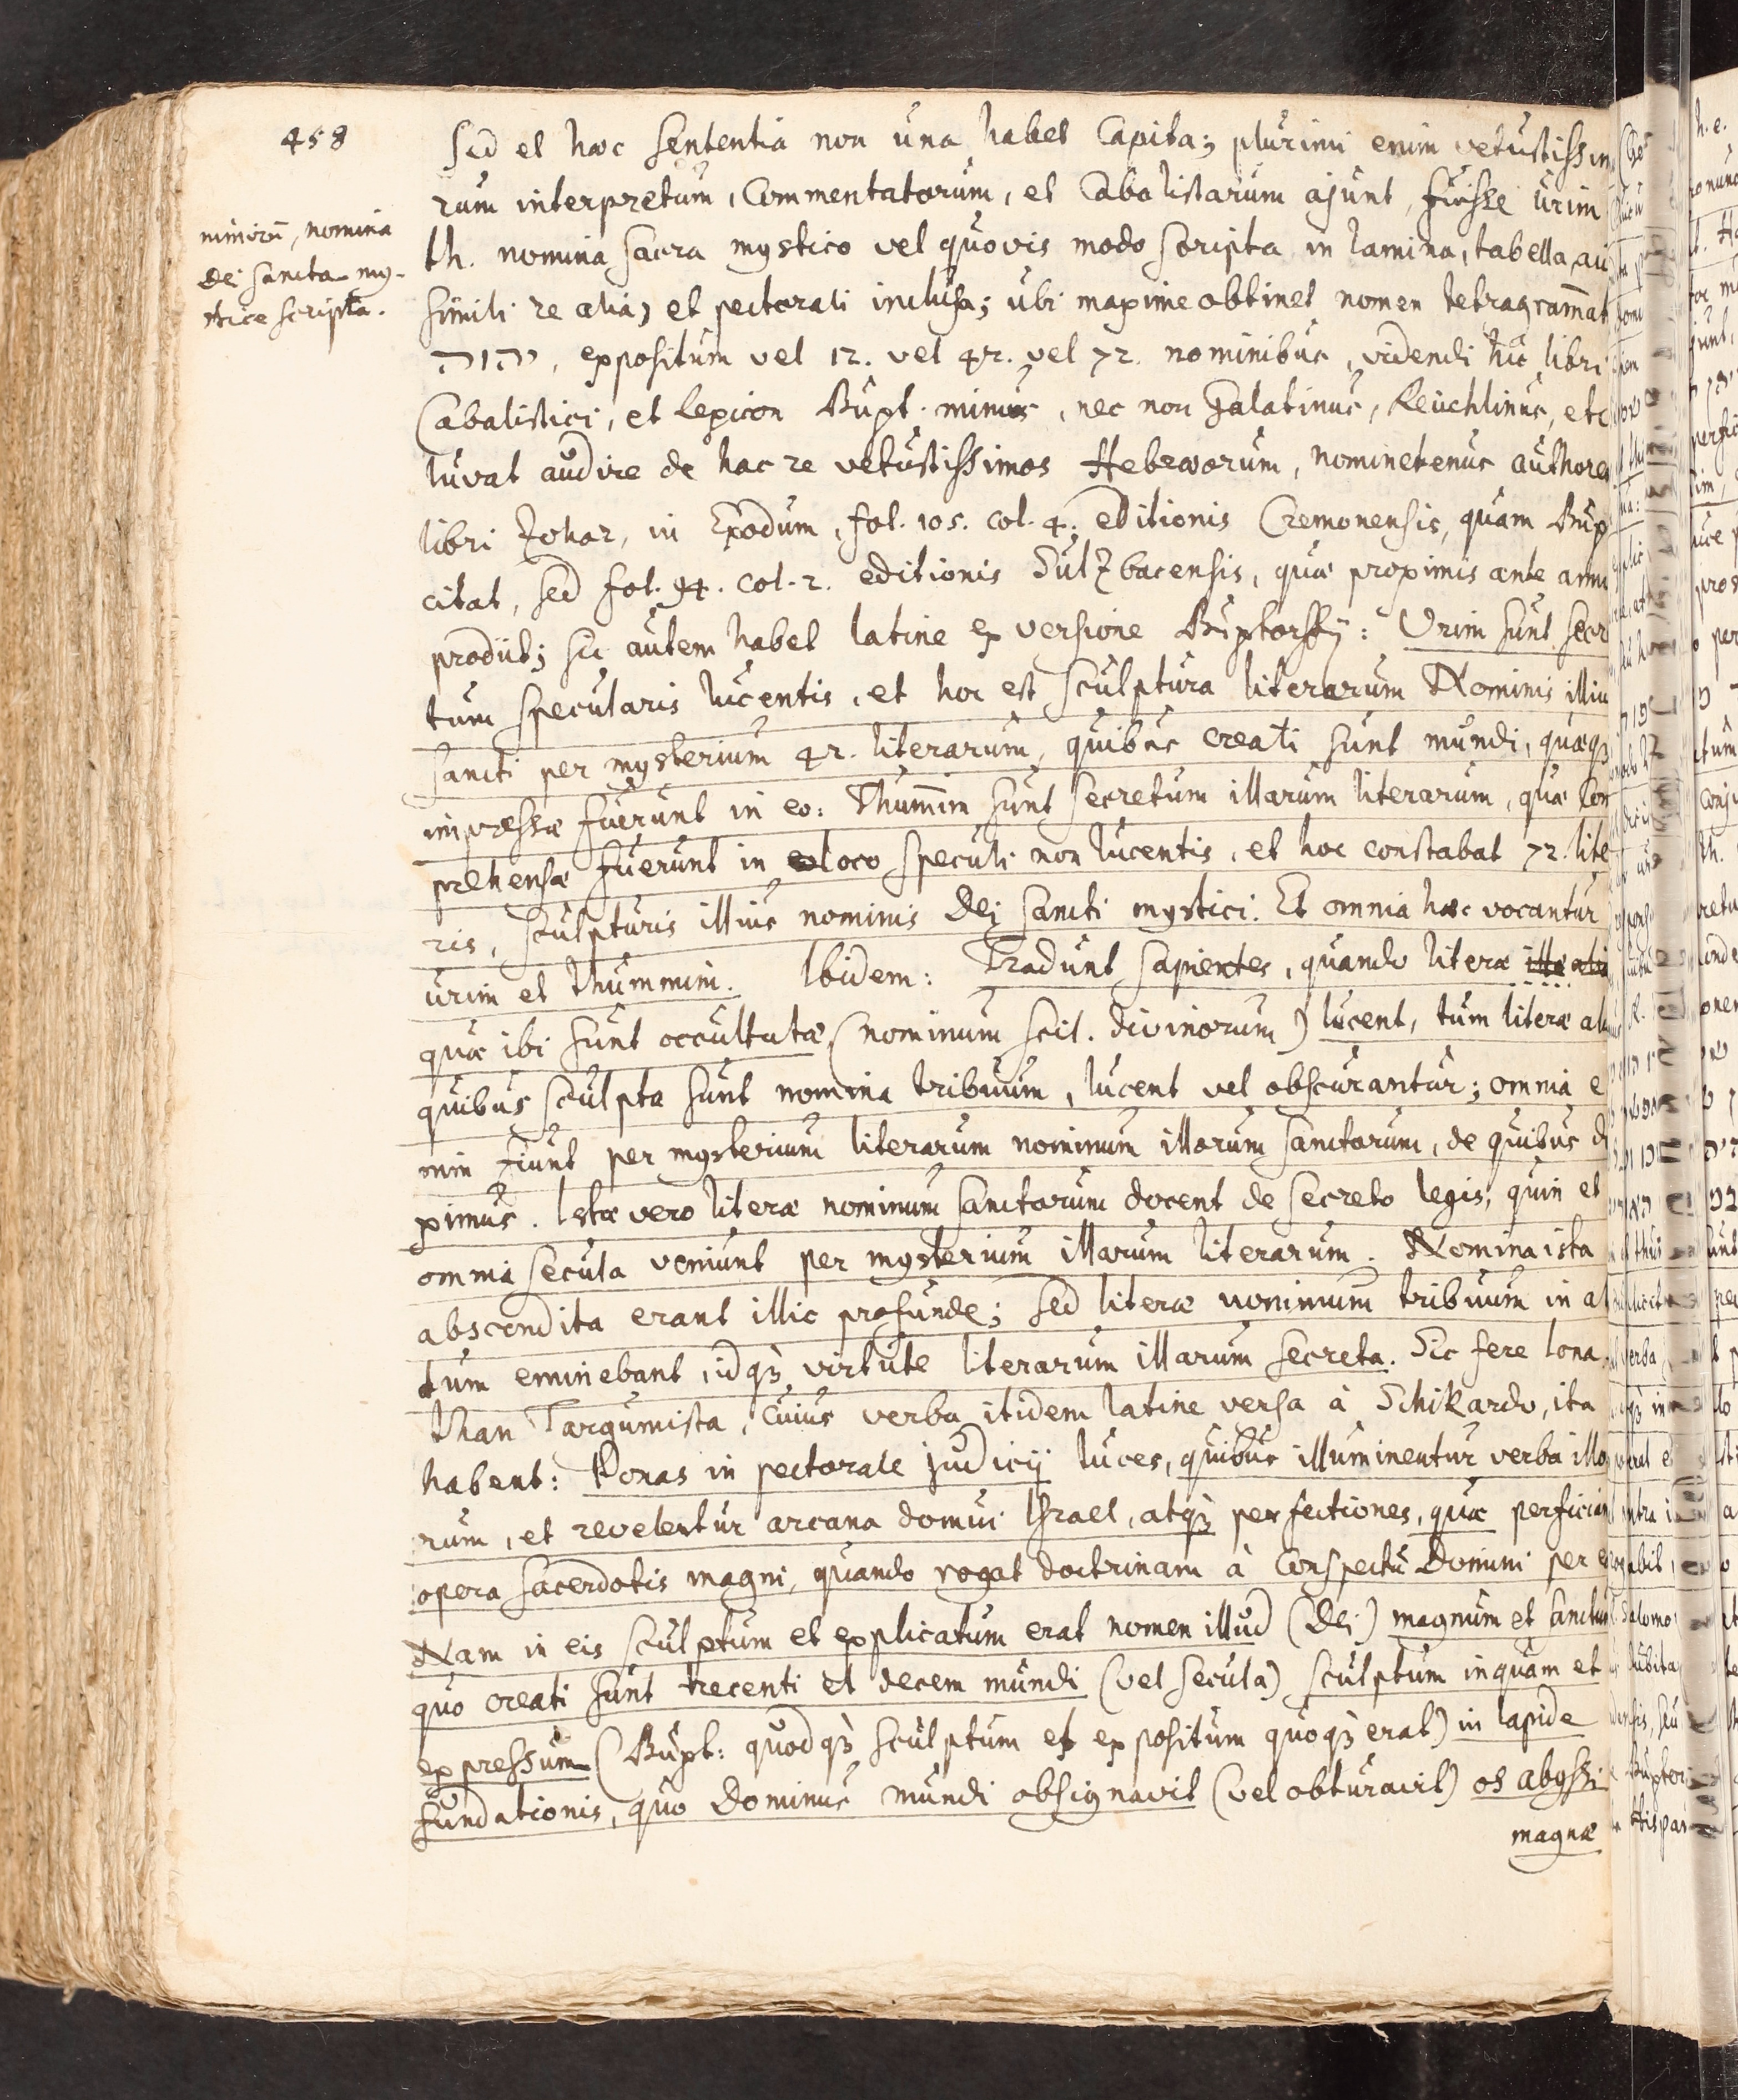 458
Sed et hæc sententia non una habet Capita; plurimi enim vetustissim
rum interpretum, Commentatorum, et Cabalistarum ajunt, fuisse urim
nimirũ, nomina
Dei sancta my-
stice scripta.
th. nomina sacra mystico vel quovis modo scripta in lamina, tabella, au
simili re alia, et pectorali inclusa; ubi maxime obtinet nomen tetragram̃at
יהוה, expositum vel 12. vel 42. vel 72. nominibus, videndi hic libri
Cabalistici, et Lexicon Buxt. minus, nec non Galatinus, Reuchlinus, etc
Iuvat audire de hac re vetustissimos Hebræorum, nominetenus authores
libri Zohar, in Exodum, fol. 105. col. 4. editionis Cremonensis, quam Bux
citat, sed fol. 94. col. 2. editionis Sulzbacensis, quæ proximis ante annu
prodiit; sic autem habet latine ex versione Buxtorffij: Urim sunt secr
tum specularis lucentis, et hoc est sculptura literarum Nominis illiu
sancti per mysterium 42. literarum, quibus creati sunt mundi, quæqȝ
impressæ fuerunt in eo: Thum̃im sunt secretum illarum literarum, quæ Com
prehensæ fuerunt in loco speculi non lucentis, et hoc constabat 72. lite
ris, sculpturis illius nominis Dei sancti mystici. Et omnia hæc vocantur
urim et thummim. Ibidem: Tradunt sapientes, quando literæ illæ aliæ
quæ ibi sunt occultatæ (nominum scil. divinorum) lucent, tum literæ al
quibus sculpta sunt nomina tribuum, lucent vel obscurantur; omnia e
nim fiunt per mysterium literarum nominum illorum sanctorum, de quibus di
ximus. Istæ vero literæ nominum sanctorum docent de secreto legis, quin et
omnia secula veniunt per mysterium illarum literarum. Nomina ista
abscondita erant illic profunde; sed literæ nominum tribuum in al
tum eminebant, idqȝ virtute literarum illarum secreta. Sic fere Iona
than Targumista, cuius verba itidem latine versa à Schikardo, ita
habent: Ponas in pectorale judicij luces, quibus illuminentur verba illo
rum, et revelentur arcana domui Israel, atqȝ perfectiones, quæ perfician
opera sacerdotis magni, quando rogat doctrinam à Conspectu Domini per e
Nam in eis sculptum et explicatum erat nomen illud (Dei) magnum et sanctum
quo creati sunt trecenti et decem mundi (vel secula) sculptum inquam et
expressum (Buxt: quodqȝ sculptum et expositum quoqȝ erat) in lapide
fundationis, quo Dominus mundi obsignavit (vel obturavit) os abyssi
magnæ